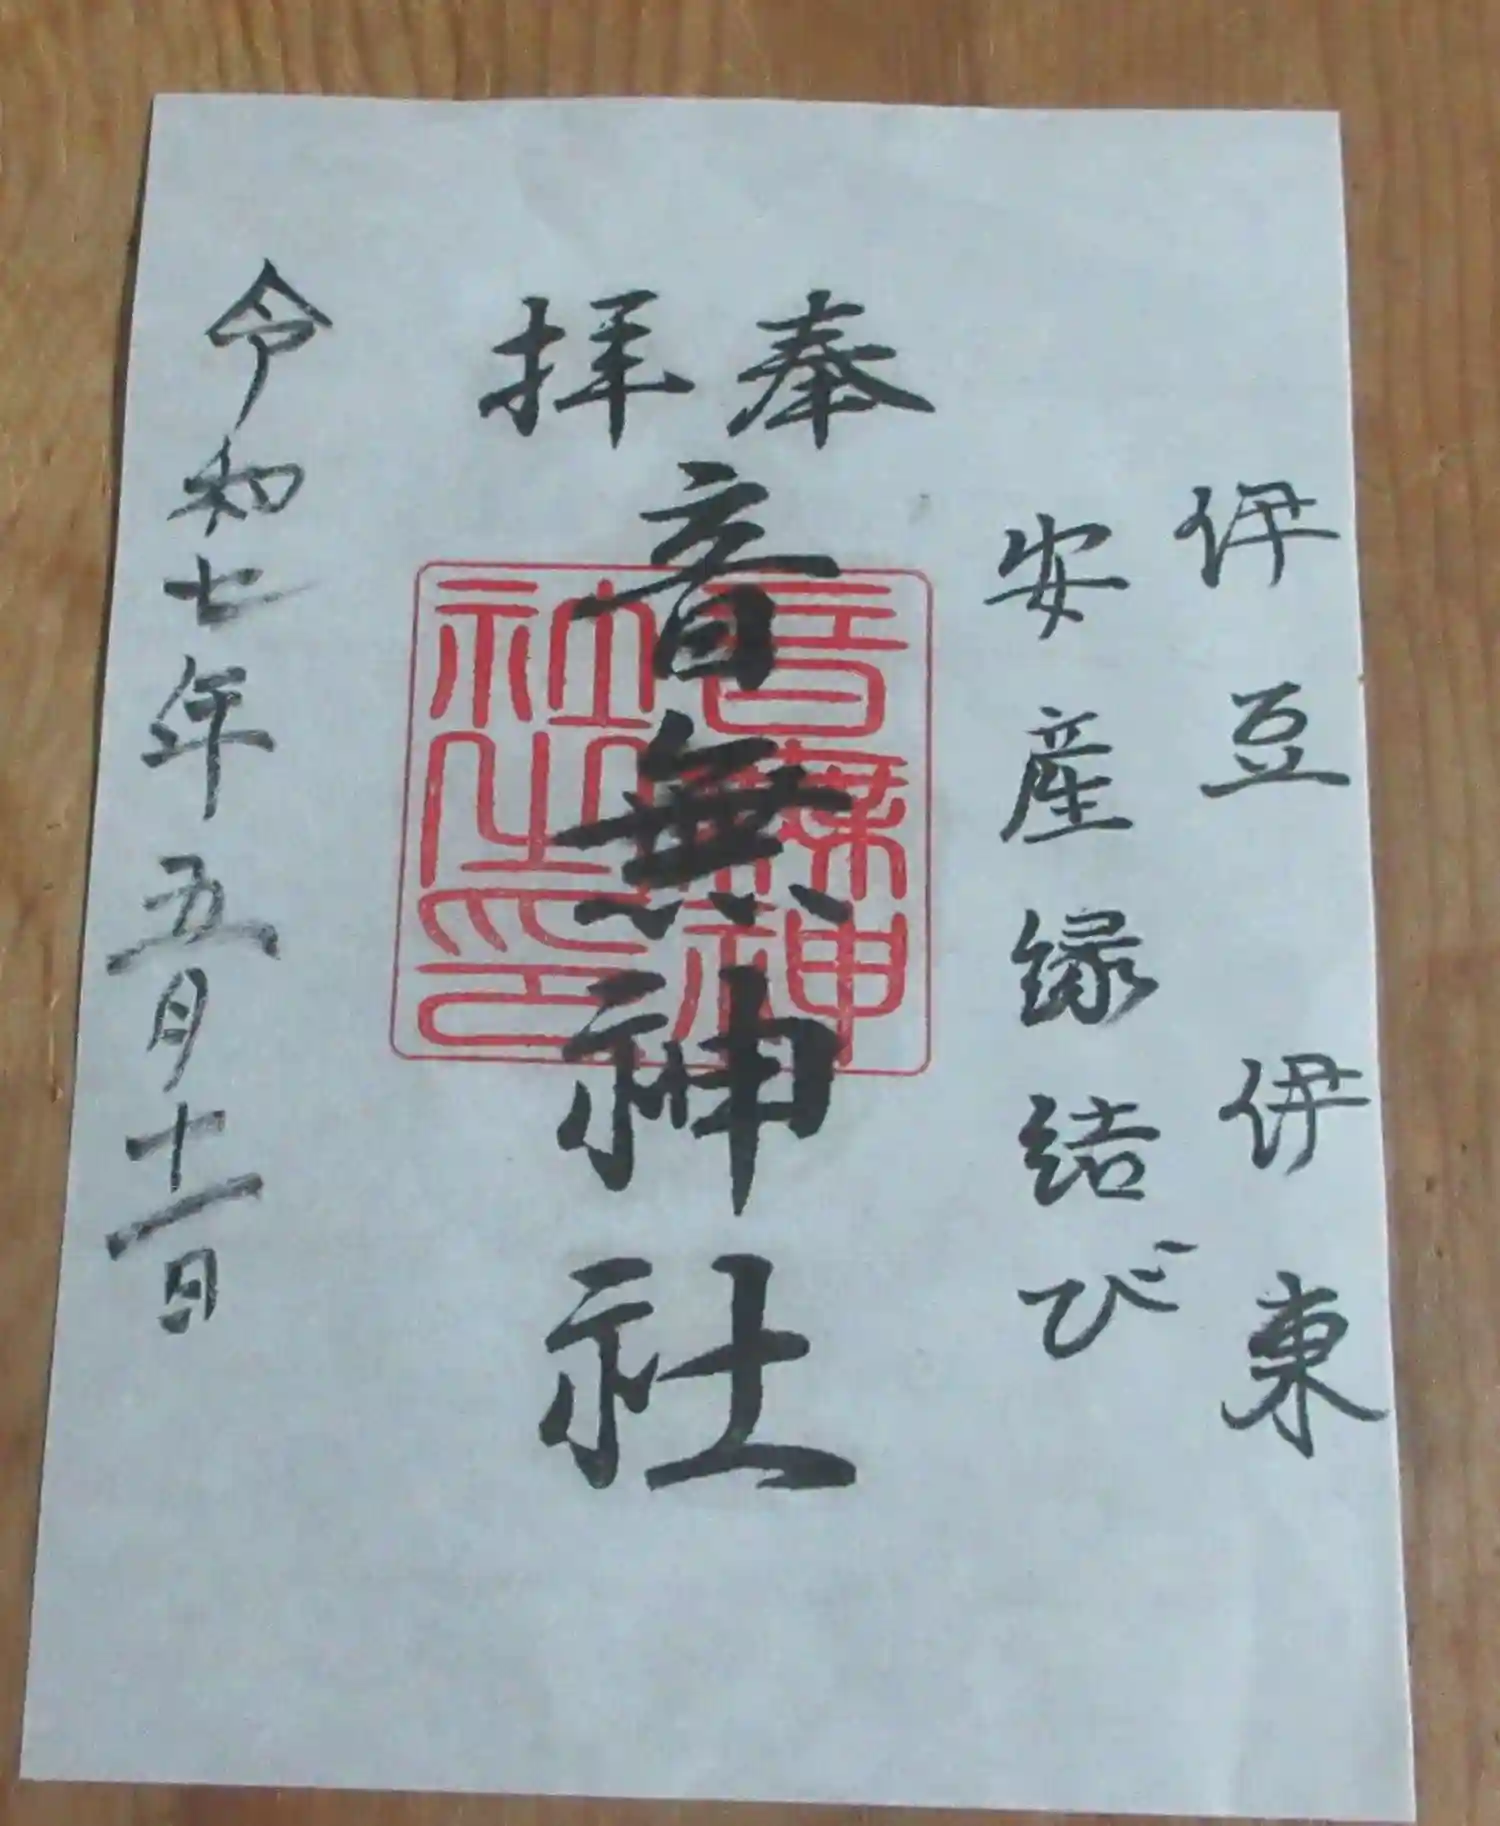 伊豆 伊東
安産縁結び
奉拝
音無神社
音無神
社之印
令和七年五月十一日